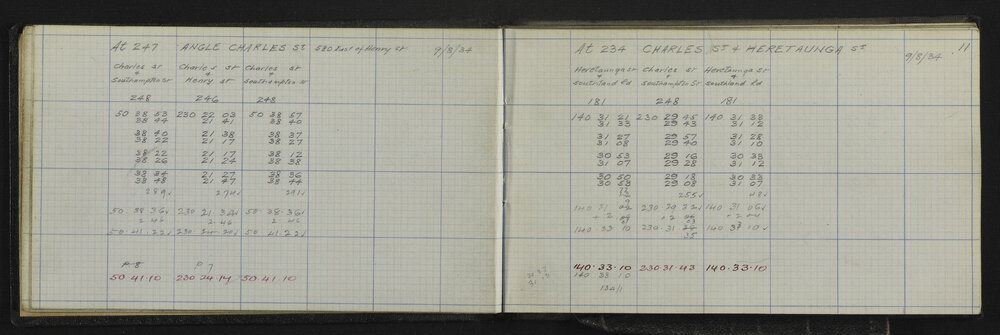 At 247 ANGLE CHARLES St. 580 East of Henry St 9/8/34
Charles St Charles St Charles St
+ + +
Southampton St Henry St Southampton St
248 246 248
50 38 53 230 22 03 50 38 57
38 44 21 41 38 40
38 40 21 38 38 37
38 22 21 17 38 27
38 22 21 17 38 12
38 26 21 24 38 38
38 34 21 27 38 36
38 48 21 47 38 44
289✓ 274✓ 291✓
50 38 36✓ 230 21 34✓ 50 38 36✓
2 46 2 46 2 46
50 41 22✓ 230 24 20✓ 50 41 22✓
50·41·10 230 24 14 50·41·10
11
At 234 CHARLES St + HERETAUNGA St 9/8/34
Heretaunga St Charles St Heretaunga St
+ + +
Southland Rd Southampton St Southland Rd
181 248 181
140 31 21 230 29 45 140 31 38
31 33 29 43 31 12
31 27 29 57 31 28
31 08 29 40 31 10
30 53 29 16 30 33
31 07 29 28 31 12
30 50 29 18 30 33
30 53 29 08 31 07
255✓ 48✓
140 31 230 29 32✓ 140 31 06✓
+ 2 + 2 + 2 04
140 33 10 230 31 35 140 33 10✓
140·33·10 230 31·43 140·33·10
140 33 10